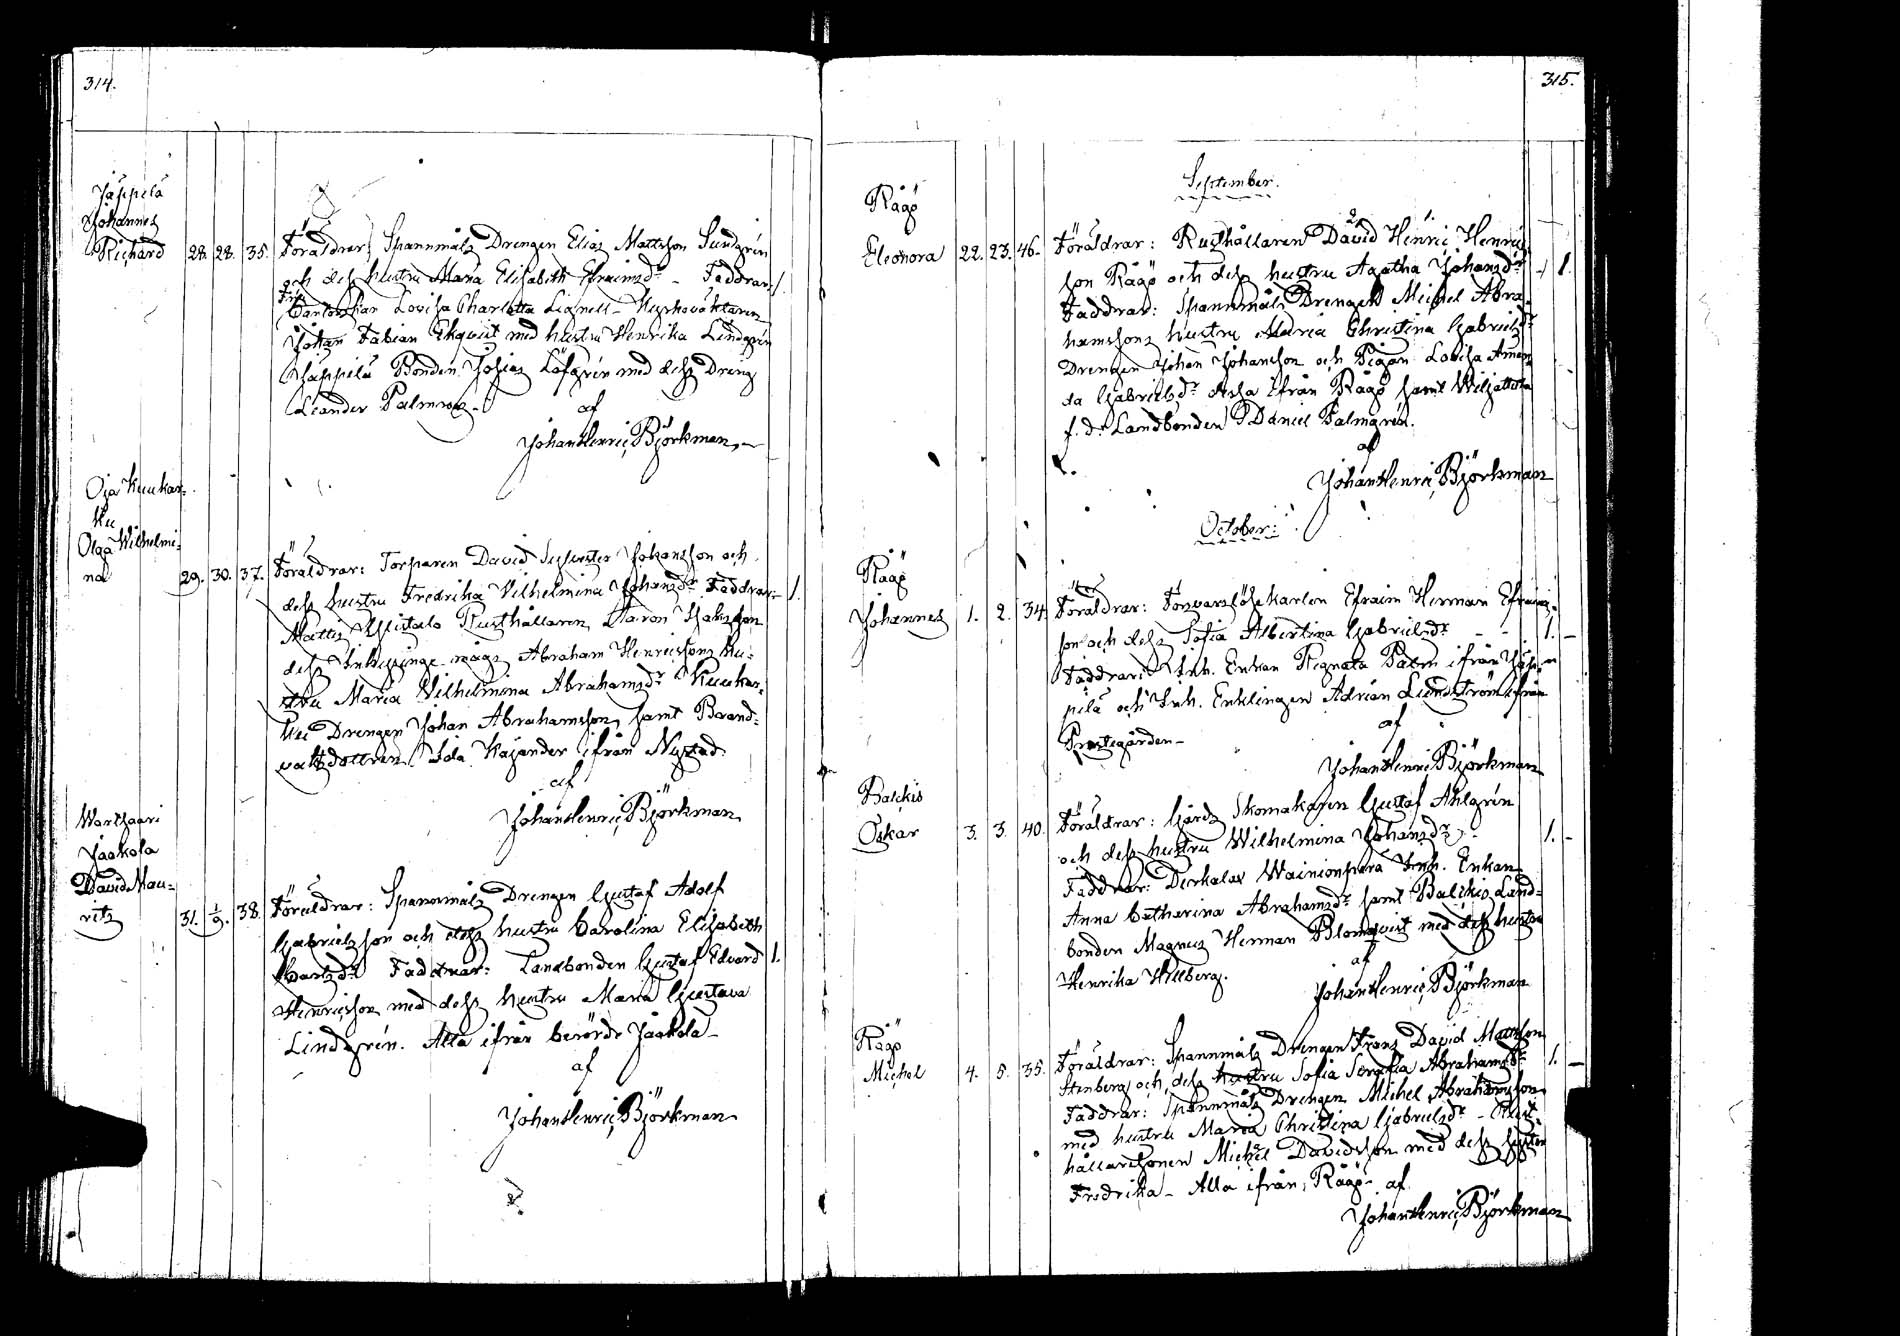 314.
Jäppilä
Johannes
Richard 28. 28. 35. Föräldrar: Spannmåls Drengen Elias Mattsson Sundgrén
och dess hustru Maria Elisabeth Efraimsdr - Faddrar: 1.
Lovisa Charlotta Lignell - Kyrkovaktaren
Johan Fabian Ekqvist med hustru Henrika Lindgrén
Jäppilä Bonden Josias Löfgrén med dess Dreng
Leander Palmroos -
af
Johan Henric Björkman
Oja Kuukar-
ku
Olga Wilhelmi-
na 29. 30. 37. Föräldrar: Torparen David Sylvester Johansson och
dess hustru Fredrika Vilhelmina Johansdr Faddrar: 1.
Mattis Rusthållaren Aaron
dess mågs Abraham Henricssons hu-
stru Maria Vilhelmina Abrahamsdr Kuukar-
ku Drengen Johan Abrahamsson samt Brand-
vaktsdottren Ida Kajander ifrån Nystad.
af
Johan Henric Björkman
Wartsaari
Jaakola
David Mau-
ritz 31. 1/9. 38. Föräldrar: Spannmåls Drengen Gustaf Adolf
Gabrielsson och dess hustru Carolina Elisabeth
Carlsdr Faddrar: Landbonden Gustaf Edvard 1.
Henricsson med dess hustru Maria Gustava
Lindgrén. Alla ifrån berörde Jaakola -
af
Johan Henric Björkman
315.
September.
Rågö
Eleonora 22. 23. 46. Föräldrar: Rusthållaren David Henric Henrics-
son Rågö och dess hustru Agatha Johansdr 1.
Faddrar: Spannmåls Drengen Michel Abra-
hamssons hustru Maria Christina Gabrielsdr
Drengen Johan Johansson och Pigan Lovisa Aman-
da Gabrielsdr dessa ifrån Rågö samt
f. d. Landbonden Daniel Palmgrén.
af
Johan Henric Björkman
October:
Rågö
Johannes 1. 2. 34. Föräldrar: Försvarslöse karlen Efraim Herman Efraims-
son och dess Sofia Albertina Gabrielsdr - - 1. -
Faddrar: Inh. Enkan Regnata Palm ifrån Jäp-
pilä och Inh. Enklingen Adrian Lundström ifrån
Prestegården -
af
Johan Henric Björkman
Balckis
Oskar 3. 3. 40. Föräldrar: Gårds Skomakaren Gustaf Ahlgrén
och dess hustru Wilhelmina Johansdr. - 1. -
Faddrar: Wainionperä Inh. Enkan
Anna Catharina Abrahamsdr samt Balckis Land-
bonden Magnus Herman Blomqvist med dess hustru
Henrika Hellberg.
af
Johan Henric Björkman
Rågö
Michel 4. 5. 35. Föräldrar: Spannmåls Drengen Frans David Mattsson
Stenberg och dess hustru Sofia Serafia Abrahamsdr 1. -
Faddrar: Spannmåls Drengen Michel Abrahamsson
med hustru Maria Christina Gabrielsdr - Rust-
hållaresonen Michel Davidsson med dess syster
Fredrika - Alla ifrån Rågö - af
Johan Henric Björkman